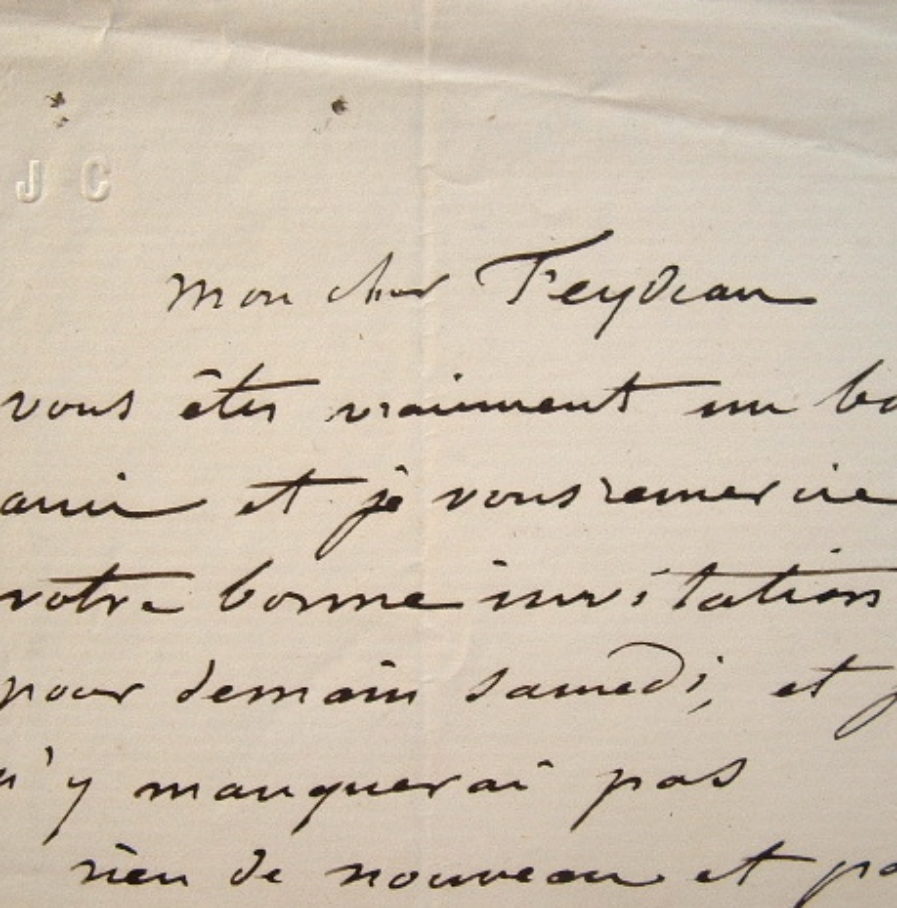 J C
mon cher Feydeau
vous êtes vraiment un bo
ami et je vous remercie
votre bonne invitation
pour demain samedi, et j
n'y manquerai pas
rien de nouveau et pa